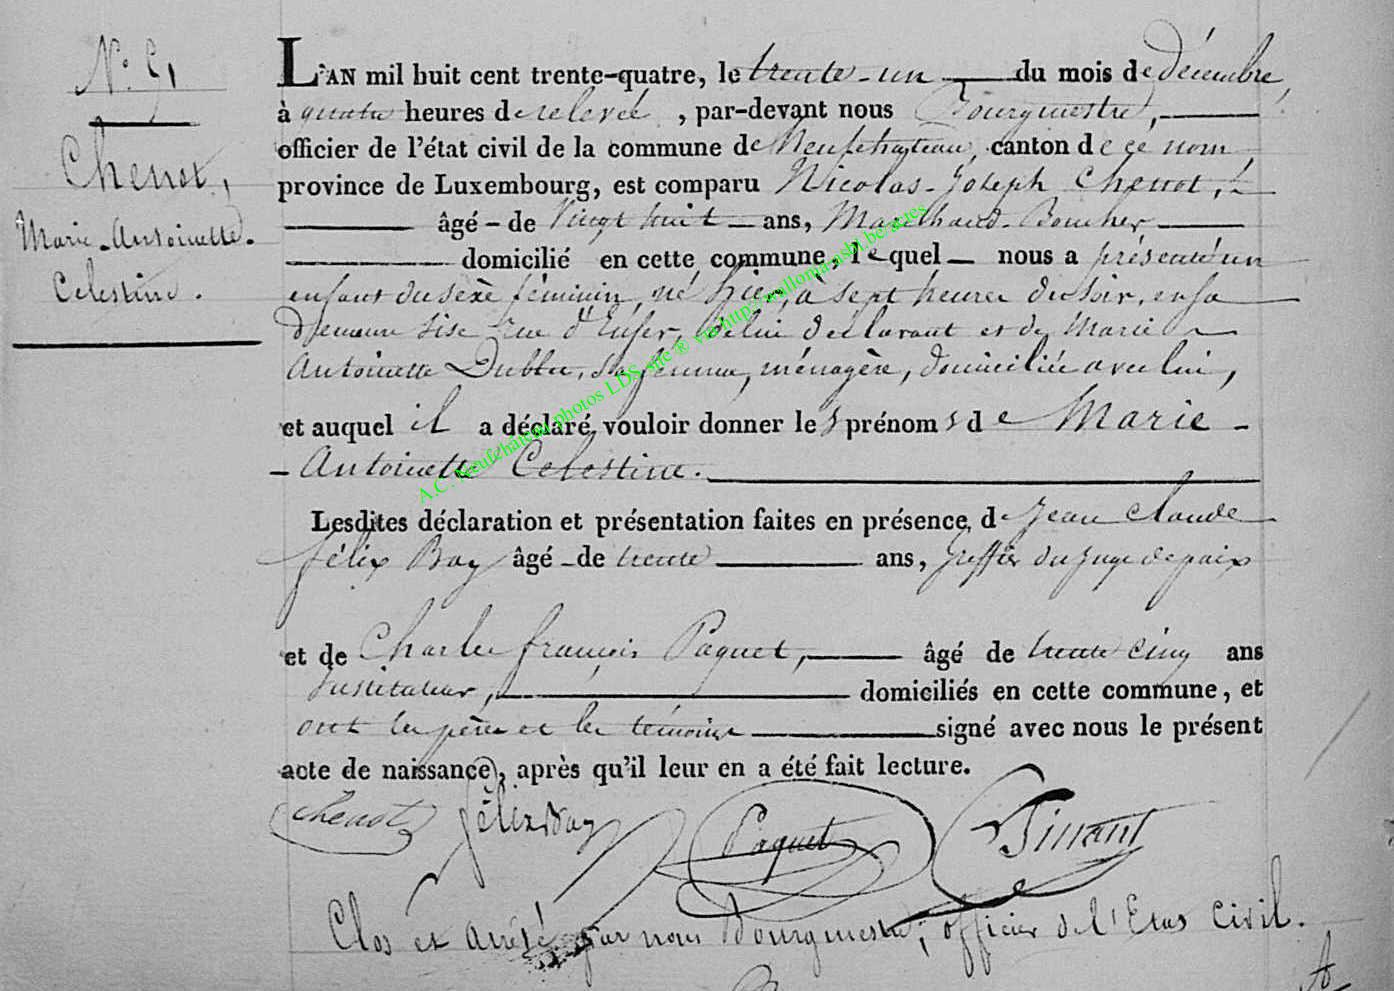 N.º 91
Chenot,
Marie-Antoinette.
Celestine.
L'AN mil huit cent trente-quatre, le trente-un du mois de décembre,
à quatre heures de relevée, par-devant nous Bourgmestre,
officier de l'état civil de la commune de Neufchateau, canton de ce nom,
province de Luxembourg, est comparu Nicolas-Joseph Chenot,
âgé-de vingt huit ans, Marchand-Boucher
domicilié en cette commune, lequel nous a présenté un
enfant du sexe féminin, né hier, à sept heures du soir, en sa
demeure sise rue d'Enfer, de lui déclarant et de Marie
Antoinette sa femme, ménagère, domiciliée avec lui,
et auquel il a déclaré vouloir donner les prénoms de Marie-
-Antoinette Celestine.
Lesdites déclaration et présentation faites en présence de Jean Claude
félix Bay âgé-de trente ans, Greffier du juge de paix
et de Charles françois Paquet, âgé de trente cinq ans
Instituteur, domiciliés en cette commune, et
ont les père et les témoins signé avec nous le présent
acte de naissance, après qu'il leur en a été fait lecture.
Chenot félix Bay Paquet
Clos et arrêté par nous Bourgmestre, officier de l'Etat Civil.
A.C. Neufchâteau photos LDS, site ® via http://wallonia.asbl.be/actes